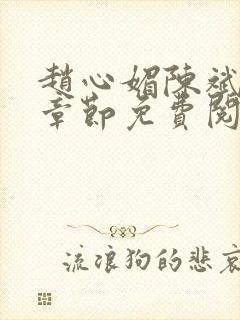 趙心媚陳斌
章節免費閱
流浪狗的悲哀